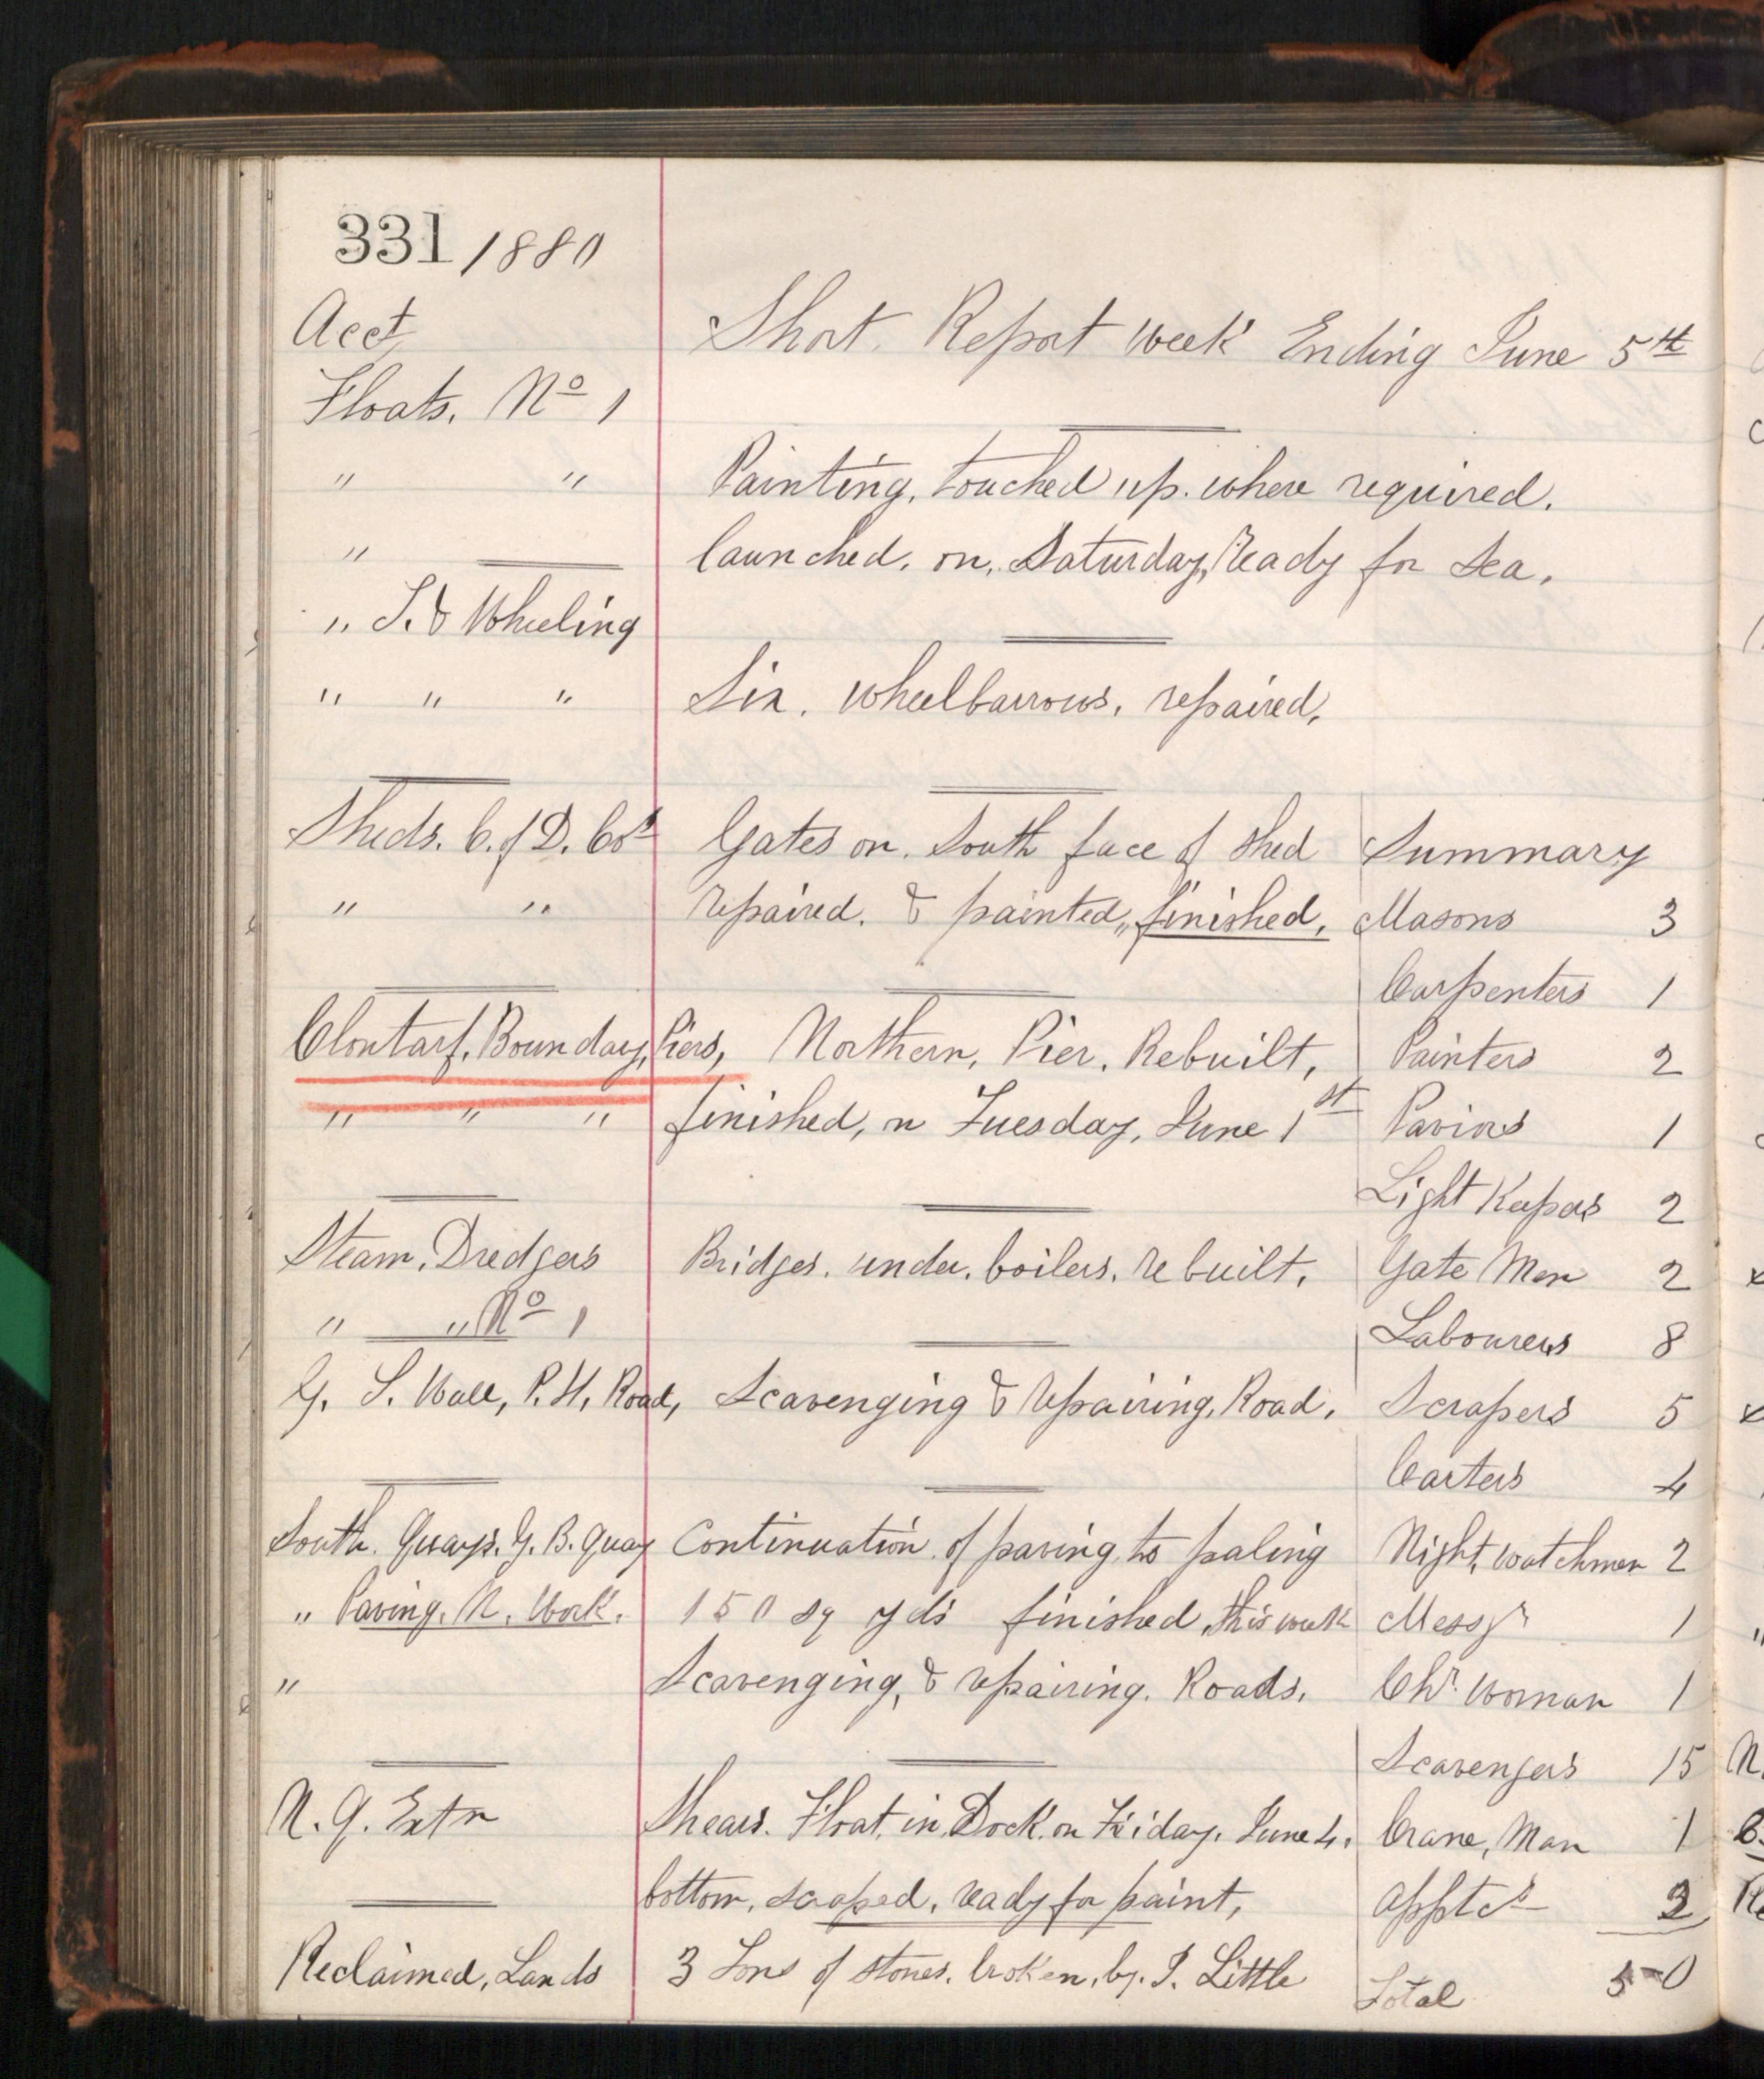 331/1880
Acct
Short. Report week Ending June 5th
Floats. No 1
" " Painting, touched up. where required.
" launched. on. Saturday, ready for Sea.
" T. & Wheeling
" " " Six. wheelbarrows. repaired,
Sheds. C. of D. Cos Gates on. South face of Shed Summary
" " repaired. & painted, finished, Masons 3
Carpenters 1
Clontarf, Boundary, Piers, Northern, Pier. Rebuilt, Painters 2
" " " finished, on Tuesday, June 1st Paviors 1
Light Keepers 2
Steam, Dredgers Bridges. under. boilers. rebuilt, Gate Men 2
" " No 1 Labourers 8
G. S. Wall, P. H. Road, Scavenging & repairing, Road. Scrapers 5
Carters 4
South. Quays. G. B. Quay Continuation of paving to paling Night, watchmen 2
" Paving. N. Work. 150 sq yds finished, this week Messgr 1
" Scavenging, & repairing. Roads. Chr woman 1
Scavengers 15
N. Q. Extn Shears. Float in Dock on Friday. June 4. Crane, Man 1
bottom, scraped, ready for paint, Apptes 2
Reclaimed, Lands 3 Tons of stones. broken, by. J. Little Total 50